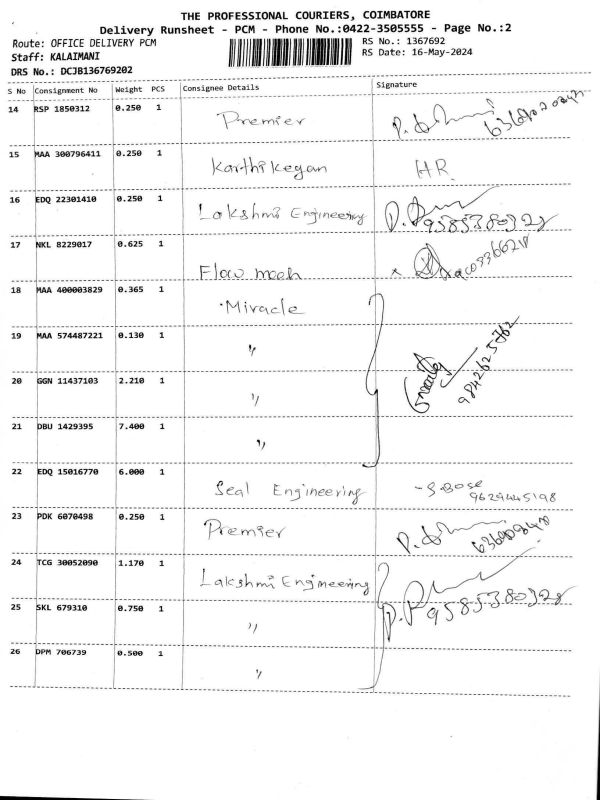 THE PROFESSIONAL COURIERS, COIMBATORE
Delivery Runsheet - PCM - Phone No.:0422-3505555 - Page No.:2
Route: OFFICE DELIVERY PCM
RS No.: 1367692
Staff: KALAIMANI
RS Date: 16-May-2024
DRS No.: DCJB136769202
S No Consignment No Weight PCS Consignee Details Signature
14 RSP 1850312 0.250 1 Premier
15 MAA 300796411 0.250 1 Karthikeyan HR
16 EDQ 22301410 0.250 1 Lakshmi Engineering 9585380928
17 NKL 8229017 0.625 1 Flow mech
18 MAA 400003829 0.365 1 Miracle
19 MAA 574487221 0.130 1 "
9842625762
20 GGN 11437103 2.210 1 "
21 DBU 1429395 7.400 1 "
22 EDQ 15016770 6.000 1 Seal Engineering - S. Bose
9629445198
23 PDK 6070498 0.250 1 Premier
24 TCG 30052090 1.170 1 Lakshmi Engineering
25 SKL 679310 0.750 1 " 9585380928
26 DPM 706739 0.500 1 "